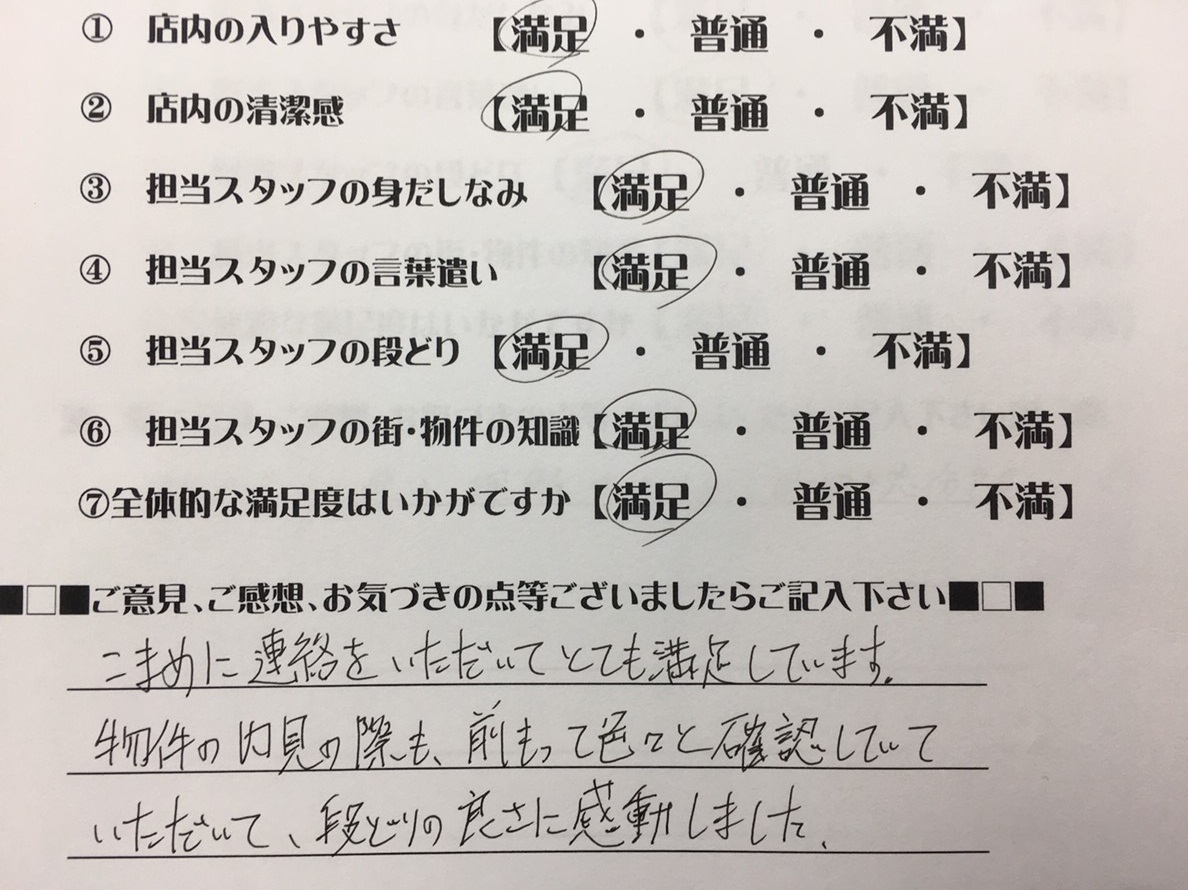 ① 店内の入りやすさ 【満足 ・ 普通 ・ 不満】
② 店内の清潔感 【満足 ・ 普通 ・ 不満】
③ 担当スタッフの身だしなみ 【満足 ・ 普通 ・ 不満】
④ 担当スタッフの言葉遣い 【満足 ・ 普通 ・ 不満】
⑤ 担当スタッフの段どり 【満足 ・ 普通 ・ 不満】
⑥ 担当スタッフの街・物件の知識【満足 ・ 普通 ・ 不満】
⑦全体的な満足度はいかがですか【満足 ・ 普通 ・ 不満】
■□■ご意見、ご感想、お気づきの点等ございましたらご記入下さい■□■
こまめに連絡をいただいてとても満足しています。
物件の内見の際も、前もって色々と確認していて
いただいて、段どりの良さに感動しました。